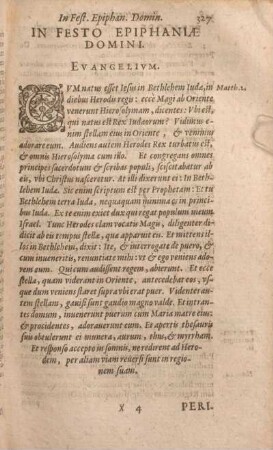 In Fest. Epiphan. Domin. 327
IN FESTO EPIPHANIÆ
DOMINI.
EVANGELIVM.
CVM natus esset Iesus in Bethlehem Iuda, in Matth. 2.
diebus Herodis regis: ecce Magi ab Oriente
venerunt Hierosolymam, dicentes: Vbi est,
qui natus est Rex Iudæorum? Vidimus e-
nim stellam eius in Oriente, & venimus
adorare eum. Audiens autem Herodes Rex turbatus est,
& omnis Hierosolyma cum illo. Et congregans omnes
principes sacerdotum & scribas populi, sciscitabatur ab
eis, vbi Christus nasceretur. At illi dixerunt ei: In Beth-
lehem Iuda. Sic enim scriptum est per Prophetam: Et tu
Bethlehem terra Iuda, nequaquam minima es in principi-
bus Iuda. Ex te enim exiet dux qui regat populum meum
Israel. Tunc Herodes clam vocatis Magis, diligenter di-
dicit ab eis tempus stellæ, quæ apparuit eis. Et mittens il-
los in Bethlehem, dixit: Ite, & interrogate de puero, &
cum inueneritis, renuntiate mihi: vt & ego veniens ado-
rem eum. Qui cum audissent regem, abierunt. Et ecce
stella, quam viderant in Oriente, antecedebat eos, v-
sque dum veniens staret supra vbi erat puer. Videntes au-
tem stellam, gauisi sunt gaudio magno valde. Et intran-
tes domum, inuenerunt puerum cum Maria matre eius:
& procidentes, adorauerunt eum. Et apertis thesauris
suis obtulerunt ei munera, aurum, thus, & myrrham.
Et responso accepto in somnis, ne redirent ad Hero-
dem, per aliam viam reuersi sunt in regio-
nem suam.
X 4 PERI.